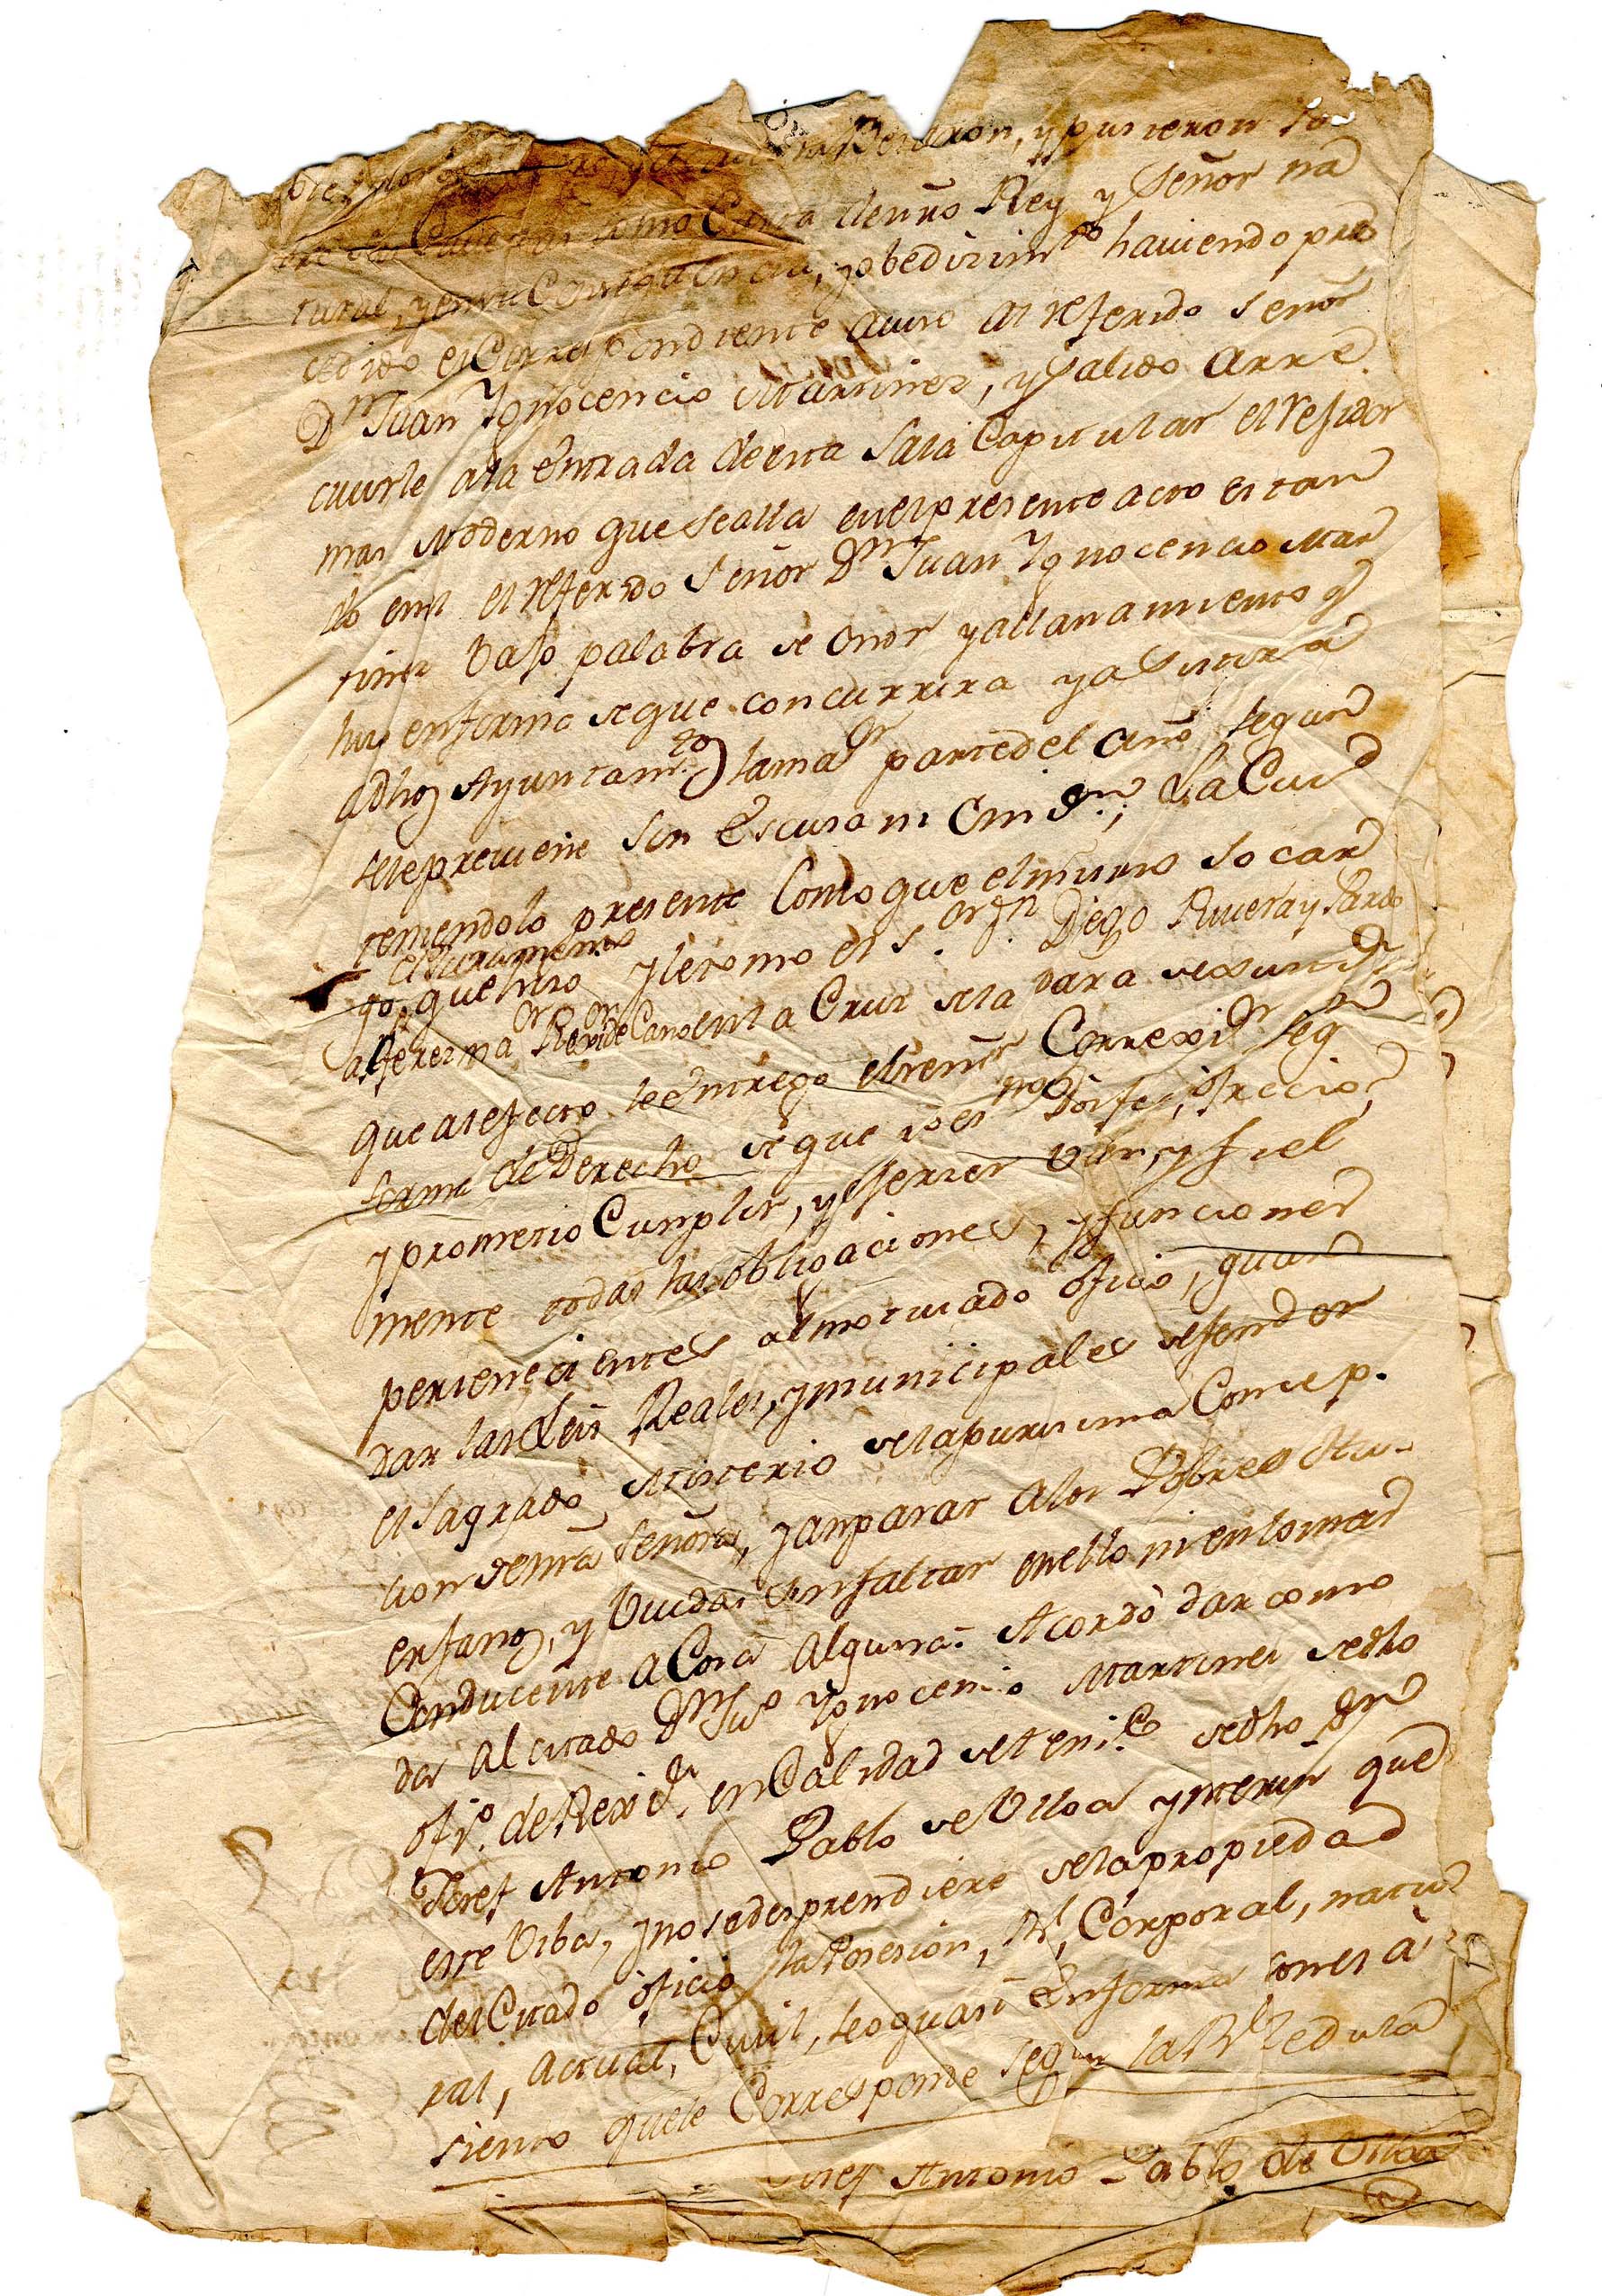 y pusieron so
como Carta de nro Rey y Señor na
tural, y en su Consequencia, y obedecimto haviendo pre
cedido el Correspondiente aviso al referido Señor
Dn Juan Ygnocencio Martinez, y salido a rre
civirle ala entrada de esta Sala Capitular el rejidor
mas Moderno que se alla en el presente acto estan
do en el referido Señor Dn Juan Ygnocencio Mar
tinez bajo palabra de Onor y allanamiento q
hizo en forma de que concurrira y asistira
a dhos Ayuntamtos la maor parte del año segun
se le previene sin Escusa ni Omison; La Ciud
teniendolo presente Como que el mismo so car
el Juramento
go, que hizo y le tomo el sor Dn Diego Rivera y Pardo
Alferez maor Rexidor Decano en la Cruz de la vara de
que al efecto le entrego el señor Correxidor seg
forma de Derecho de que yo el no Doi fee, ofrecio,
y prometio Cumplir, y ejerzer vien, y fiel
mente todas las obligaciones, y funciones
pertenecientes al motivado ofico, guar
dar las Leis Reales, y municipales defender
el Sagrado Misterio de la purisima Concep.
cion de nra Señora, y anparar a los Pobres Hu-
erfanos, y Viudas sin faltar en ello ni en lo mas
Conducente a Cosa Alguna. Acordò dar como
da al citado Dn Juo Ygnocencio Martinez de dho
ofio. de Rexidr. en Calidad de teni.e de dho Dn
Josef Antonio Pablo de Ulloa ynterin que
este viba, y no se desprendiere de la propiedad
del Citado oficio la Posesion, Rl, Corporal, natu
ral, Actual, Civil, seo guasi en forma con el à
siento que le Corresponde segun la Rl Zedula
Josef Antonio Pablo de Ulloa